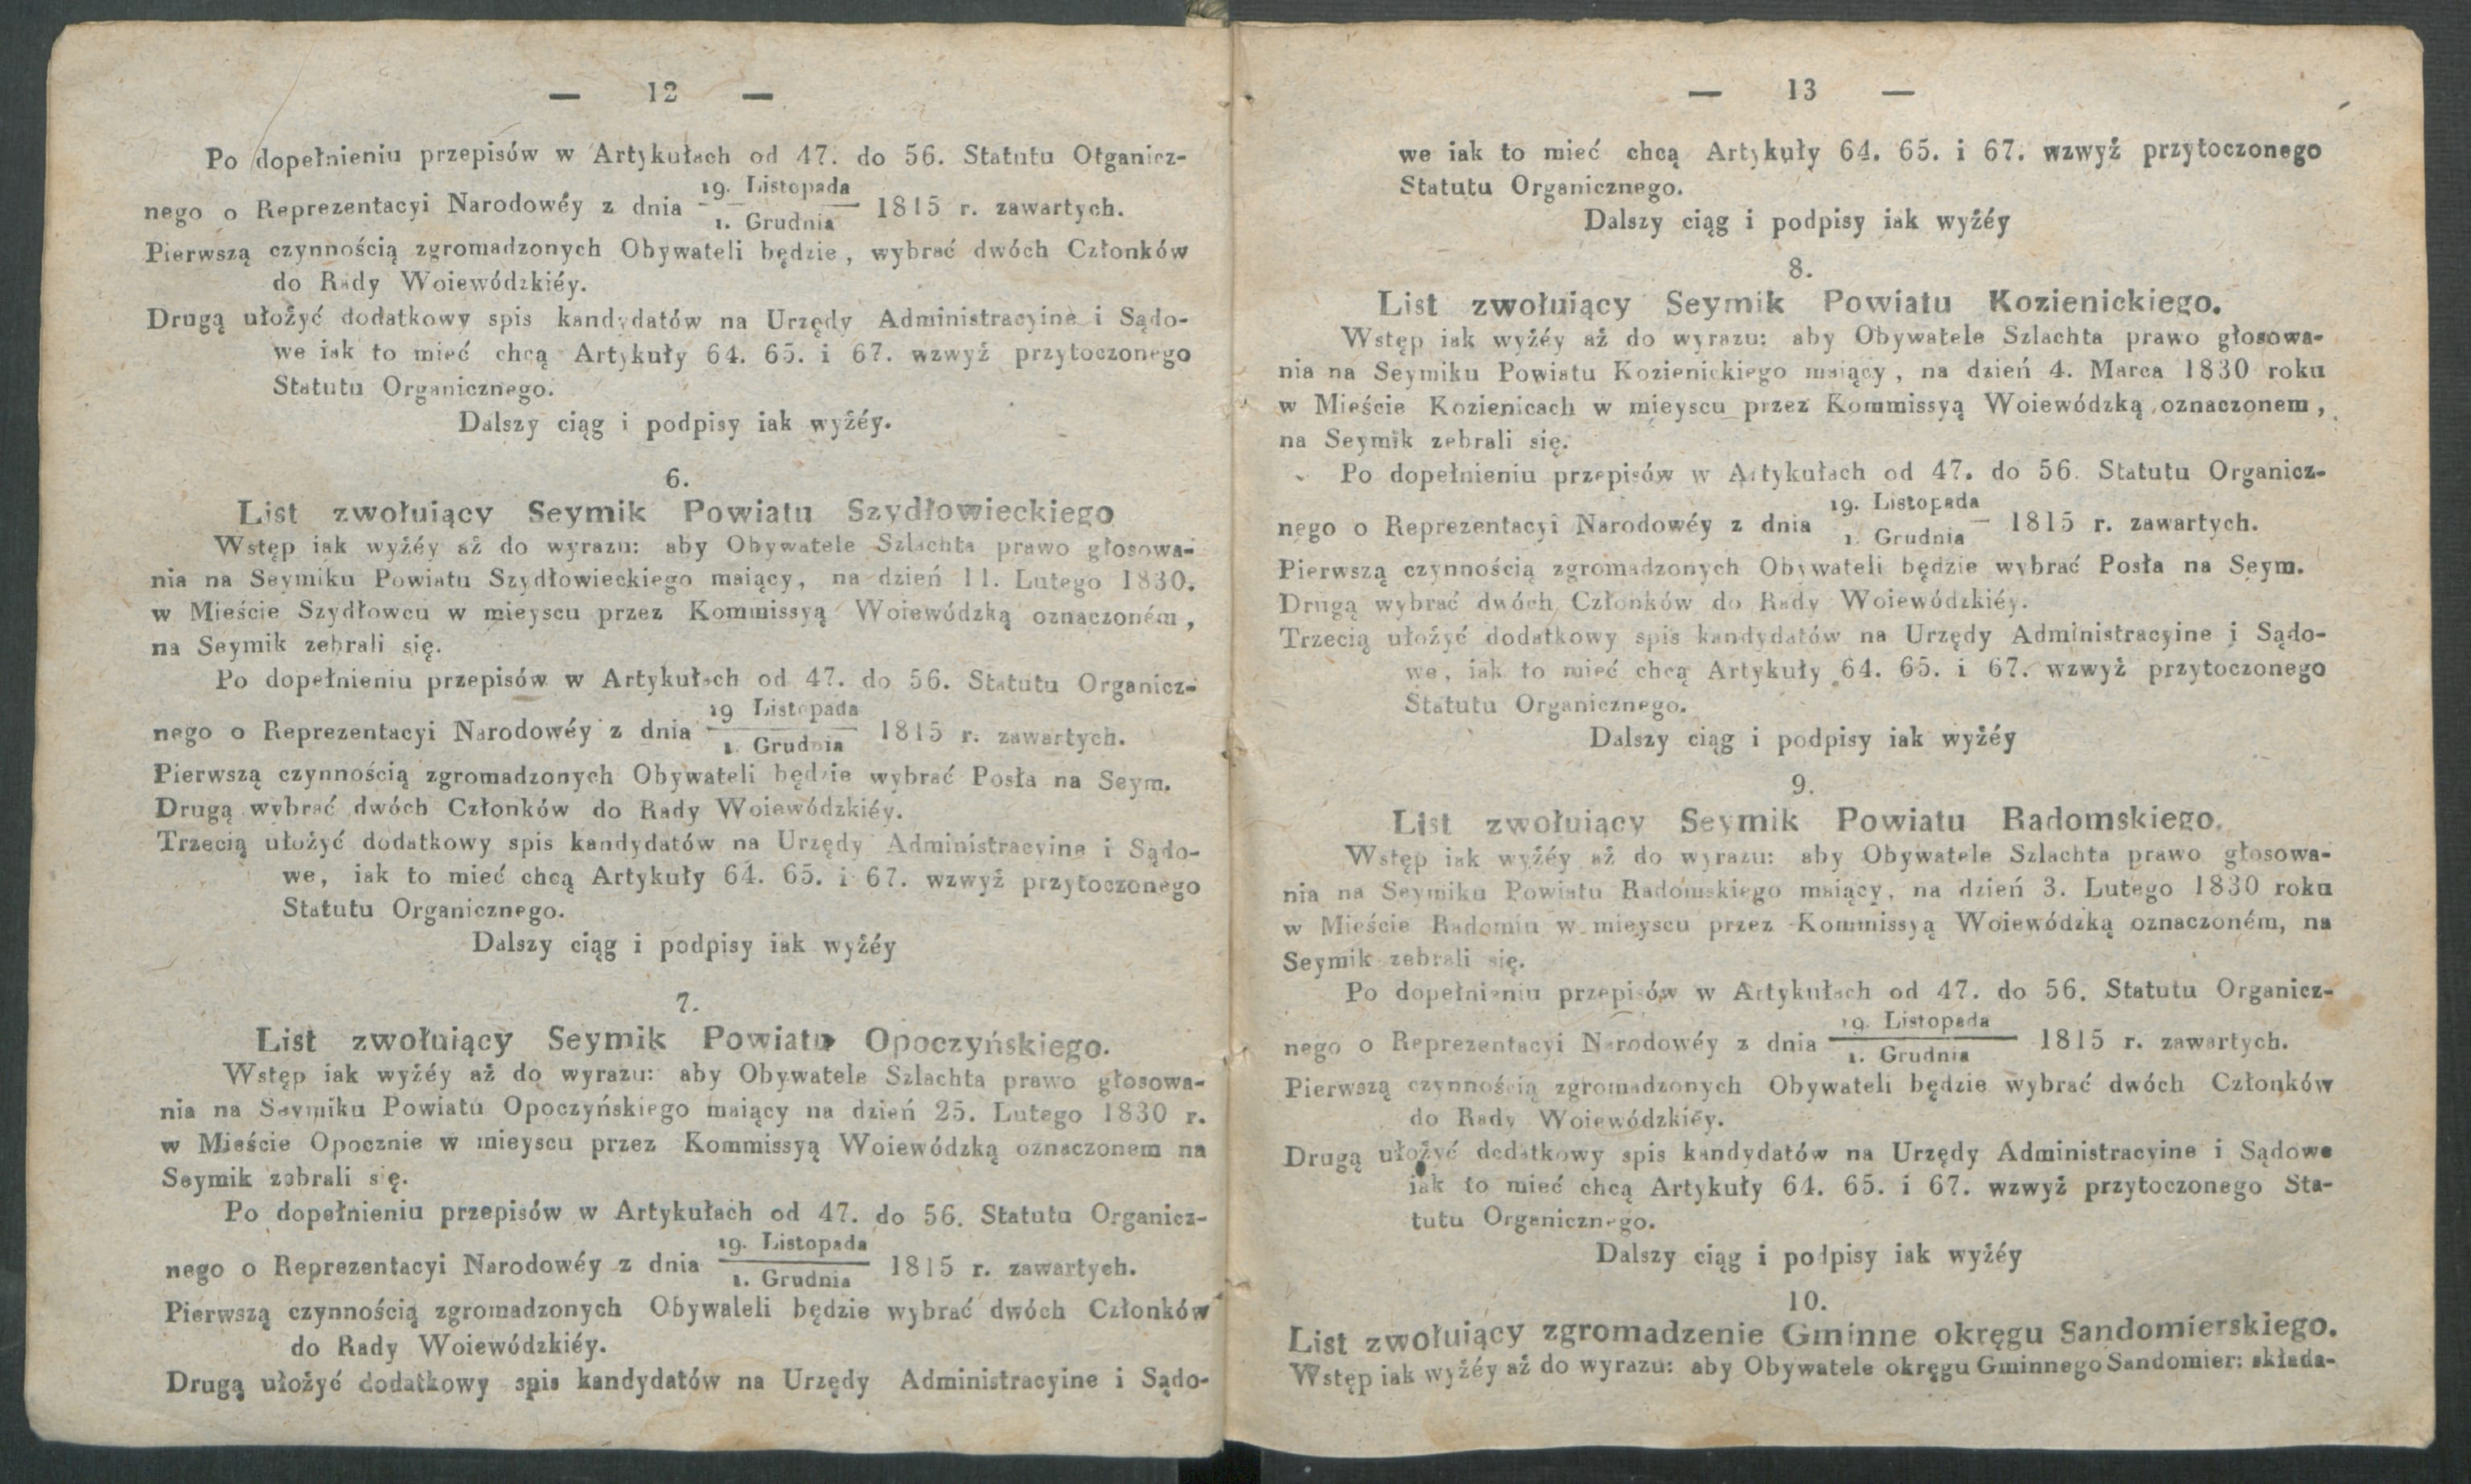 — 12 —
Po dopełnieniu przepisów w Artykułach od 47. do 56. Statutu Otganicz-
nego o Reprezentacyi Narodowéy z dnia 19. Listopada / 1. Grudnia 1815 r. zawartych.
Pierwszą czynnością zgromadzonych Obywateli będzie, wybrać dwóch Członków
do Rady Woiewódzkiéy.
Drugą ułożyć dodatkowy spis kandydatów na Urzędy Administracyine i Sądo-
we iak to mieć chcą Artykuły 64. 65. i 67. wzwyż przytoczonego
Statutu Organicznego.
Dalszy ciąg i podpisy iak wyżéy.
6.
List zwołuiący Seymik Powiatu Szydłowieckiego
Wstęp iak wyżéy aż do wyrazu: aby Obywatele Szlachta prawo głosowa-
nia na Seymiku Powiatu Szydłowieckiego maiący, na dzień 11. Lutego 1830.
w Mieście Szydłowcu w mieyscu przez Kommissyą Woiewódzką oznaczoném,
na Seymik zebrali się.
Po dopełnieniu przepisów w Artykułach od 47. do 56. Statutu Organicz-
nego o Reprezentacyi Narodowéy z dnia 19 Listopada / 1. Grudnia 1815 r. zawartych.
Pierwszą czynnością zgromadzonych Obywateli będzie wybrać Posła na Seym.
Drugą wybrać dwóch Członków do Rady Woiewódzkiéy.
Trzecią ułożyć dodatkowy spis kandydatów na Urzędy Administracyine i Sądo-
we, iak to mieć chcą Artykuły 64. 65. i 67. wzwyż przytoczonego
Statutu Organicznego.
Dalszy ciąg i podpisy iak wyżéy
7.
List zwołuiący Seymik Powiatu Opoczyńskiego.
Wstęp iak wyżéy aż do wyrazu: aby Obywatele Szlachta prawo głosowa-
nia na Seymiku Powiatu Opoczyńskiego maiący na dzień 25. Lutego 1830 r.
w Mieście Opocznie w mieyscu przez Kommissyą Woiewódzką oznaczonem na
Seymik zebrali się.
Po dopełnieniu przepisów w Artykułach od 47. do 56. Statutu Organicz-
nego o Reprezentacyi Narodowéy z dnia 19. Listopada / 1. Grudnia 1815 r. zawartych.
Pierwszą czynnością zgromadzonych Obywaleli będzie wybrać dwóch Członków
do Rady Woiewódzkiéy.
Drugą ułożyć dodatkowy spis kandydatów na Urzędy Administracyine i Sądo-
— 13 —
we iak to mieć chcą Artykuły 64. 65. i 67. wzwyż przytoczonego
Statutu Organicznego.
Dalszy ciąg i podpisy iak wyżéy
8.
List zwołuiący Seymik Powiatu Kozienickiego.
Wstęp iak wyżéy aż do wyrazu: aby Obywatele Szlachta prawo głosowa-
nia na Seymiku Powiatu Kozienickiego maiący, na dzień 4. Marca 1830 roku
w Mieście Kozienicach w mieyscu przez Kommissyą Woiewódzką oznaczonem,
na Seymik zebrali się.
Po dopełnieniu przepisów w Artykułach od 47. do 56. Statutu Organicz-
nego o Reprezentacyi Narodowéy z dnia 19. Listopada / 1. Grudnia 1815 r. zawartych.
Pierwszą czynnością zgromadzonych Obywateli będzie wybrać Posła na Seym.
Drugą wybrać dwóch Członków do Rady Woiewódzkiéy.
Trzecią ułożyć dodatkowy spis kandydatów na Urzędy Administracyine i Sądo-
we, iak to mieć chcą Artykuły 64. 65. i 67. wzwyż przytoczonego
Statutu Organicznego.
Dalszy ciąg i podpisy iak wyżéy
9.
List zwołuiący Seymik Powiatu Radomskiego.
Wstęp iak wyżéy aż do wyrazu: aby Obywatele Szlachta prawo głosowa-
nia na Seymiku Powiatu Radomskiego maiący, na dzień 3. Lutego 1830 roku
w Mieście Radomiu w mieyscu przez Kommissyą Woiewódzką oznaczoném, na
Seymik zebrali się.
Po dopełnieniu przepisów w Artykułach od 47. do 56. Statutu Organicz-
nego o Reprezentacyi Narodowéy z dnia 19. Listopada / 1. Grudnia 1815 r. zawartych.
Pierwszą czynnością zgromadzonych Obywateli będzie wybrać dwóch Członków
do Rady Woiewódzkiéy.
Drugą ułożyć dodatkowy spis kandydatów na Urzędy Administracyine i Sądowe
iak to mieć chcą Artykuły 64. 65. i 67. wzwyż przytoczonego Sta-
tutu Organicznego.
Dalszy ciąg i podpisy iak wyżéy
10.
List zwołuiący zgromadzenie Gminne okręgu Sandomierskiego.
Wstęp iak wyżéy aż do wyrazu: aby Obywatele okręgu Gminnego Sandomier: składa-